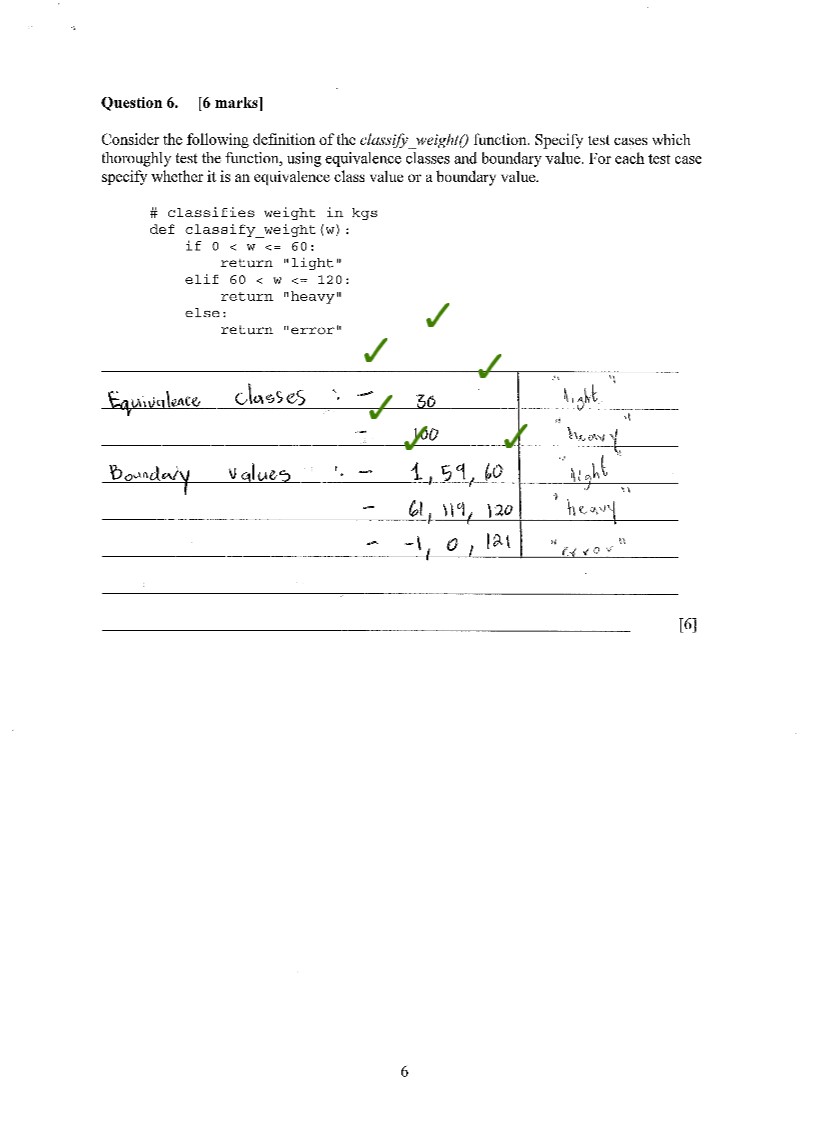 Question 6. [6 marks]
Consider the following definition of the classify_weight() function. Specify test cases which
thoroughly test the function, using equivalence classes and boundary value. For each test case
specify whether it is an equivalence class value or a boundary value.
# classifies weight in kgs
def classify_weight(w):
    if 0 < w <= 60:
        return "light"
    elif 60 < w <= 120:
        return "heavy"
    else:
        return "error"
Equivalence classes :- 30 "light"
- 100 "heavy"
Boundary values :- 1, 59, 60 "light"
- 61, 119, 120 "heavy"
- -1, 0, 121 "error"
[6]
6